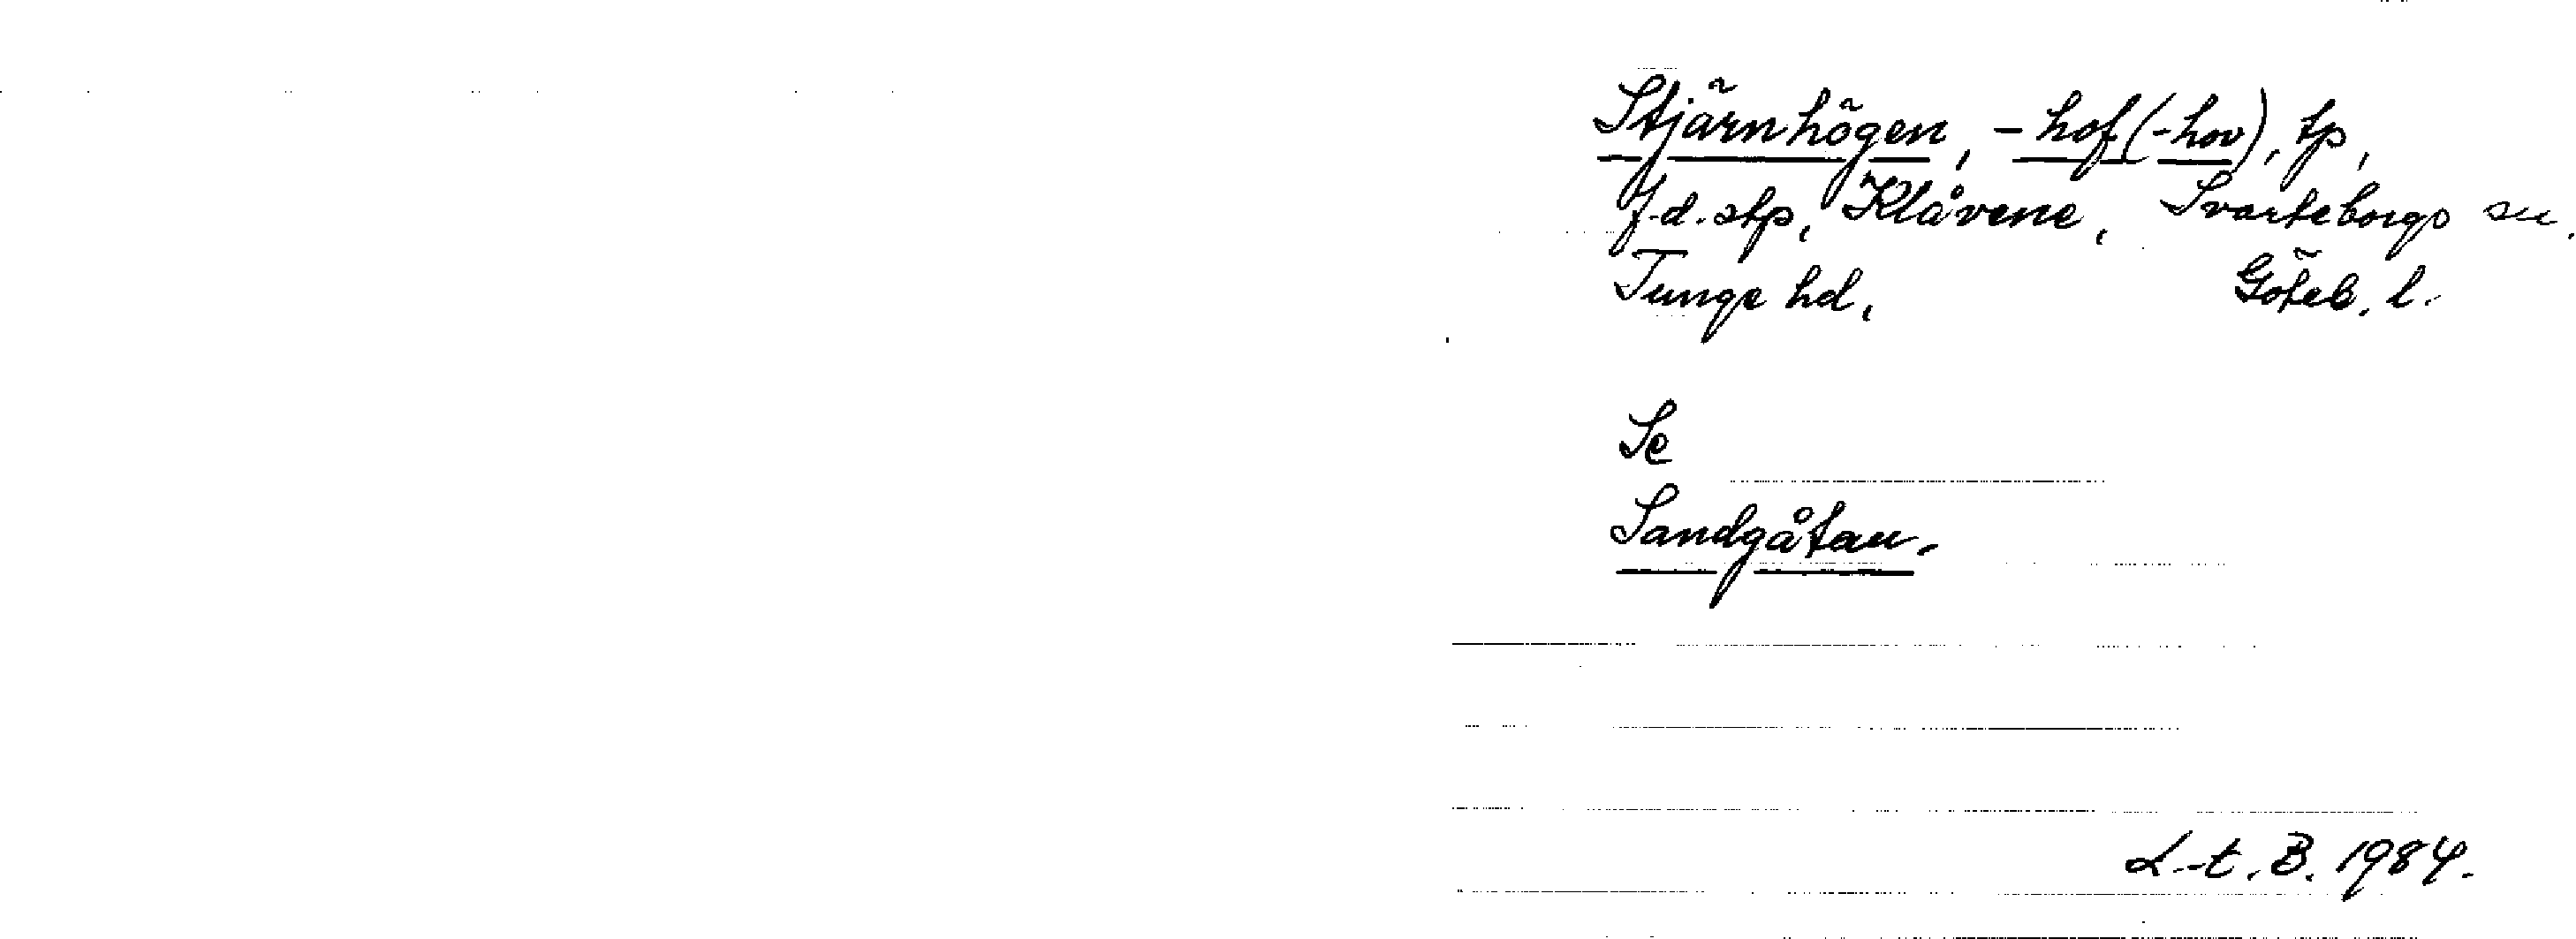 Stjärnhögen, -hof (-hov), tp,
f.d. stp, Klåvene, Svarteborgs sn.
Tunge hd, Göteb. l.
Se
Sandgåtan.
L.-t. B. 1984.